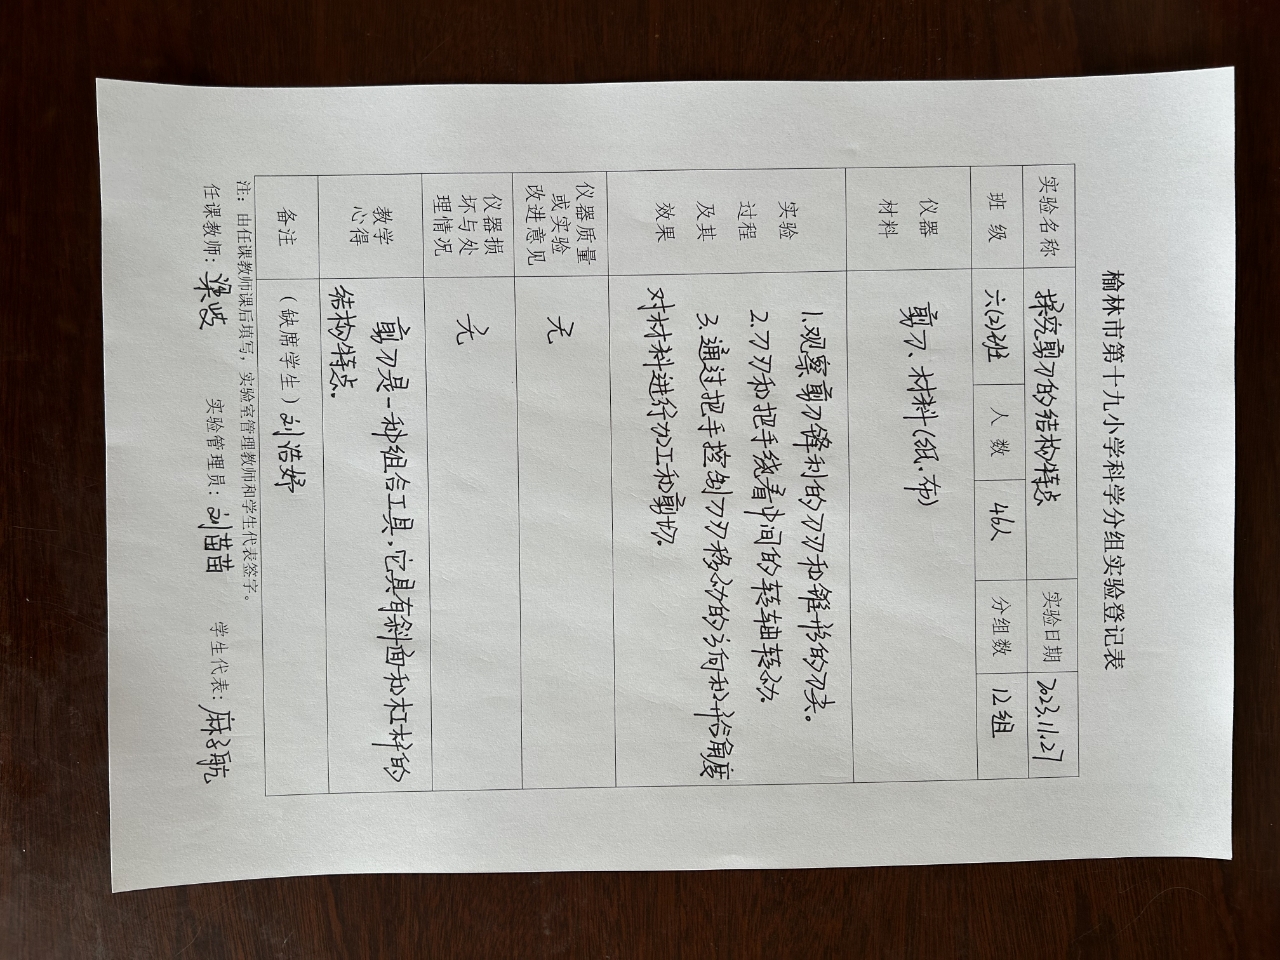 榆林市第十九小学科学分组实验登记表
实验名称 探究剪刀的结构特点 实验日期 2023.11.27
班级 六(2)班 人数 46人 分组数 12组
仪器
材料
剪刀、材料(纸、布)
实验
过程
及其
效果
1.观察剪刀锋利的刀刃和锥形的刀尖。
2.刀刃和把手绕着中间的转轴转动。
3.通过把手控制刀刃移动的方向和开合角度
对材料进行加工和剪切。
仪器质量
或实验
改进意见
无
仪器损
坏与处
理情况
无
教学
心得
剪刀是一种组合工具,它具有斜面和杠杆的
结构特点。
备注 (缺席学生)刘浩妤
注:由任课教师课后填写,实验室管理教师和学生代表签字。
任课教师:梁岐 实验管理员:刘苗苗 学生代表:麻子航